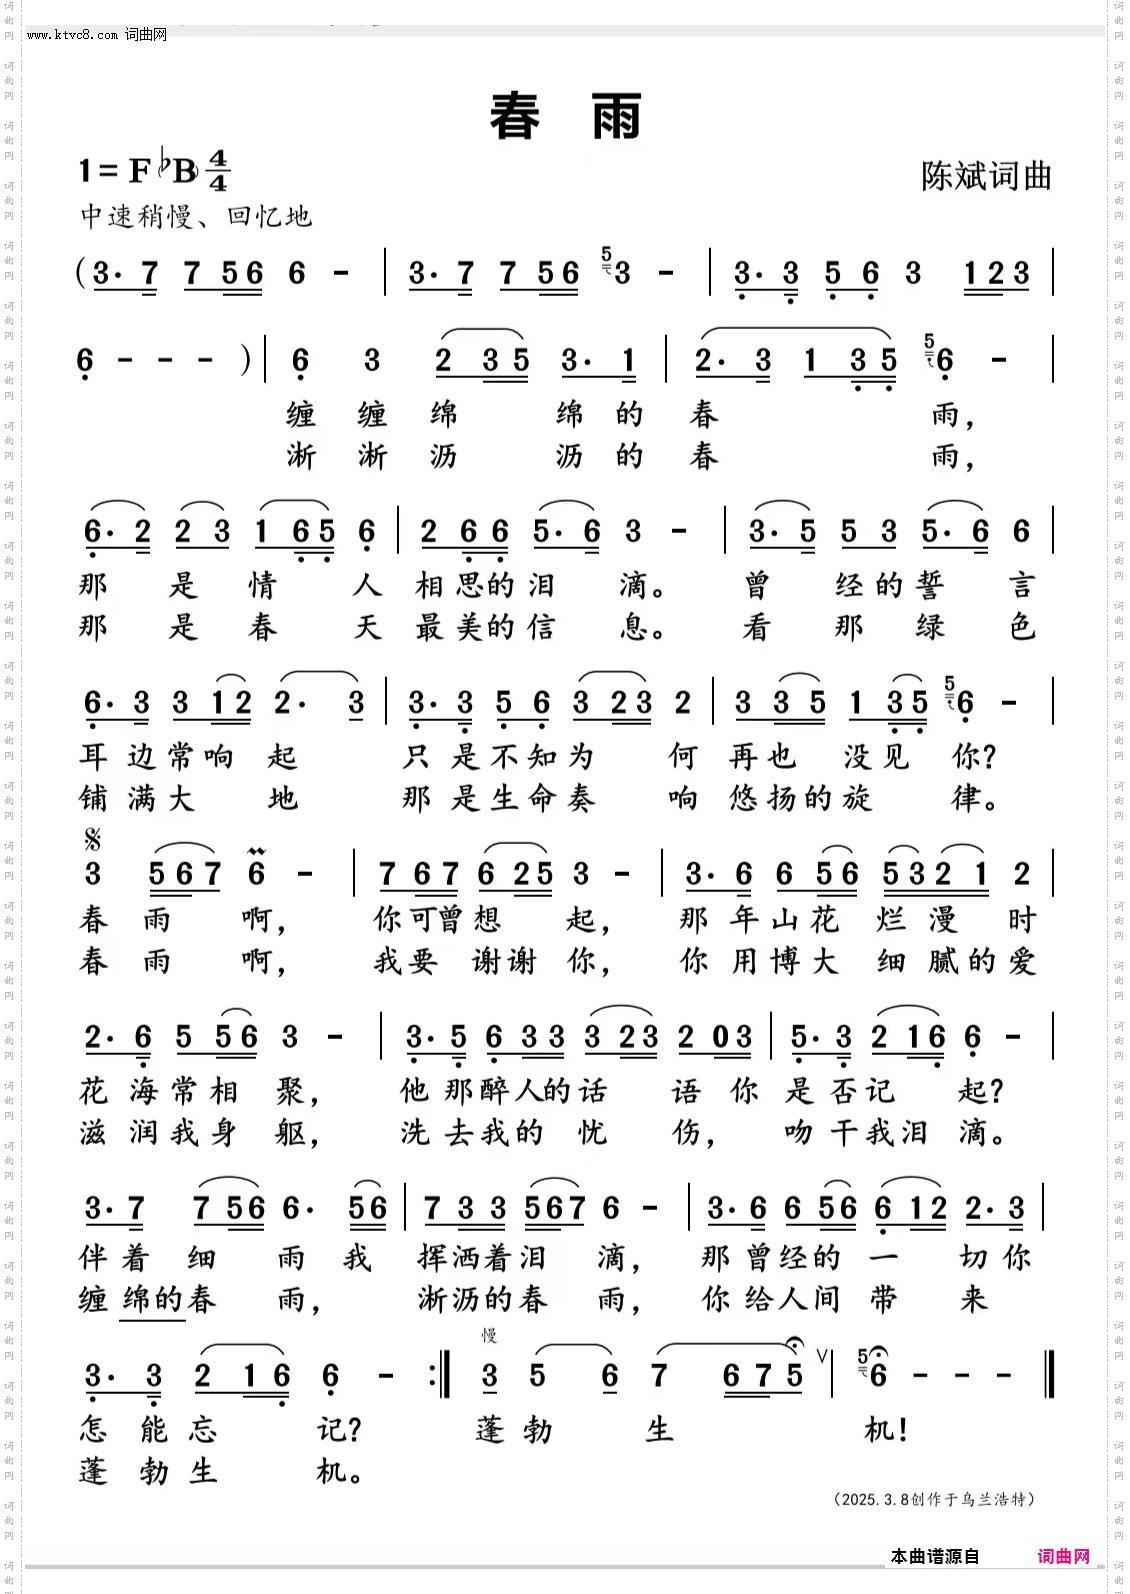 www.ktvc8.com 词曲网
春 雨
1=F(♭B) 4/4
陈斌词曲
中速稍慢、回忆地
(3· 7 7 56 6 - | 3· 7 7 56 5 3 - | 3· 3 5 6 3 123 |
6 - - - ) | 6 3 2 35 3· 1 | 2· 3 1 35 5 6 - |
缠 缠 绵 绵 的 春 雨,
淅 淅 沥 沥 的 春 雨,
6· 2 2 3 1 65 6 | 2 66 5· 6 3 - | 3· 5 5 3 5· 6 6 |
那 是 情 人 相思的泪 滴。 曾 经的誓 言
那 是 春 天 最美的信 息。 看 那 绿 色
6· 3 3 12 2· 3 | 3· 3 5 6 3 23 2 | 3 35 1 35 5 6 - |
耳 边常响 起 只 是不知为 何 再也 没见 你?
铺 满大 地 那 是生命奏 响 悠扬的旋 律。
3 567 6 - | 7 67 6 25 3 - | 3· 6 6 56 5321 2 |
春 雨 啊, 你可曾想 起, 那 年山花 烂漫 时
春 雨 啊, 我要 谢谢你, 你 用博大 细腻的爱
2· 6 5 56 3 - | 3· 5 6 33 3 23 2 03 | 5· 3 2 16 6 - |
花 海常相 聚, 他 那醉人的话 语 你 是否记 起?
滋 润我身 躯, 洗 去我的 忧 伤, 吻 干我泪 滴。
3· 7 7 56 6· 56 | 7 33 567 6 - | 3· 6 6 56 6 12 2· 3 |
伴 着 细 雨 我 挥洒着泪 滴, 那 曾经的 一 切你
缠 绵的春 雨, 淅沥的春 雨, 你 给人间 带 来
慢
3· 3 2 16 6 - :‖ 3 5 6 7 67 5 V | 5 6 - - - ‖
怎 能忘 记? 蓬 勃 生 机!
蓬 勃生 机。
(2025.3.8创作于乌兰浩特)
本曲谱源自 词曲网